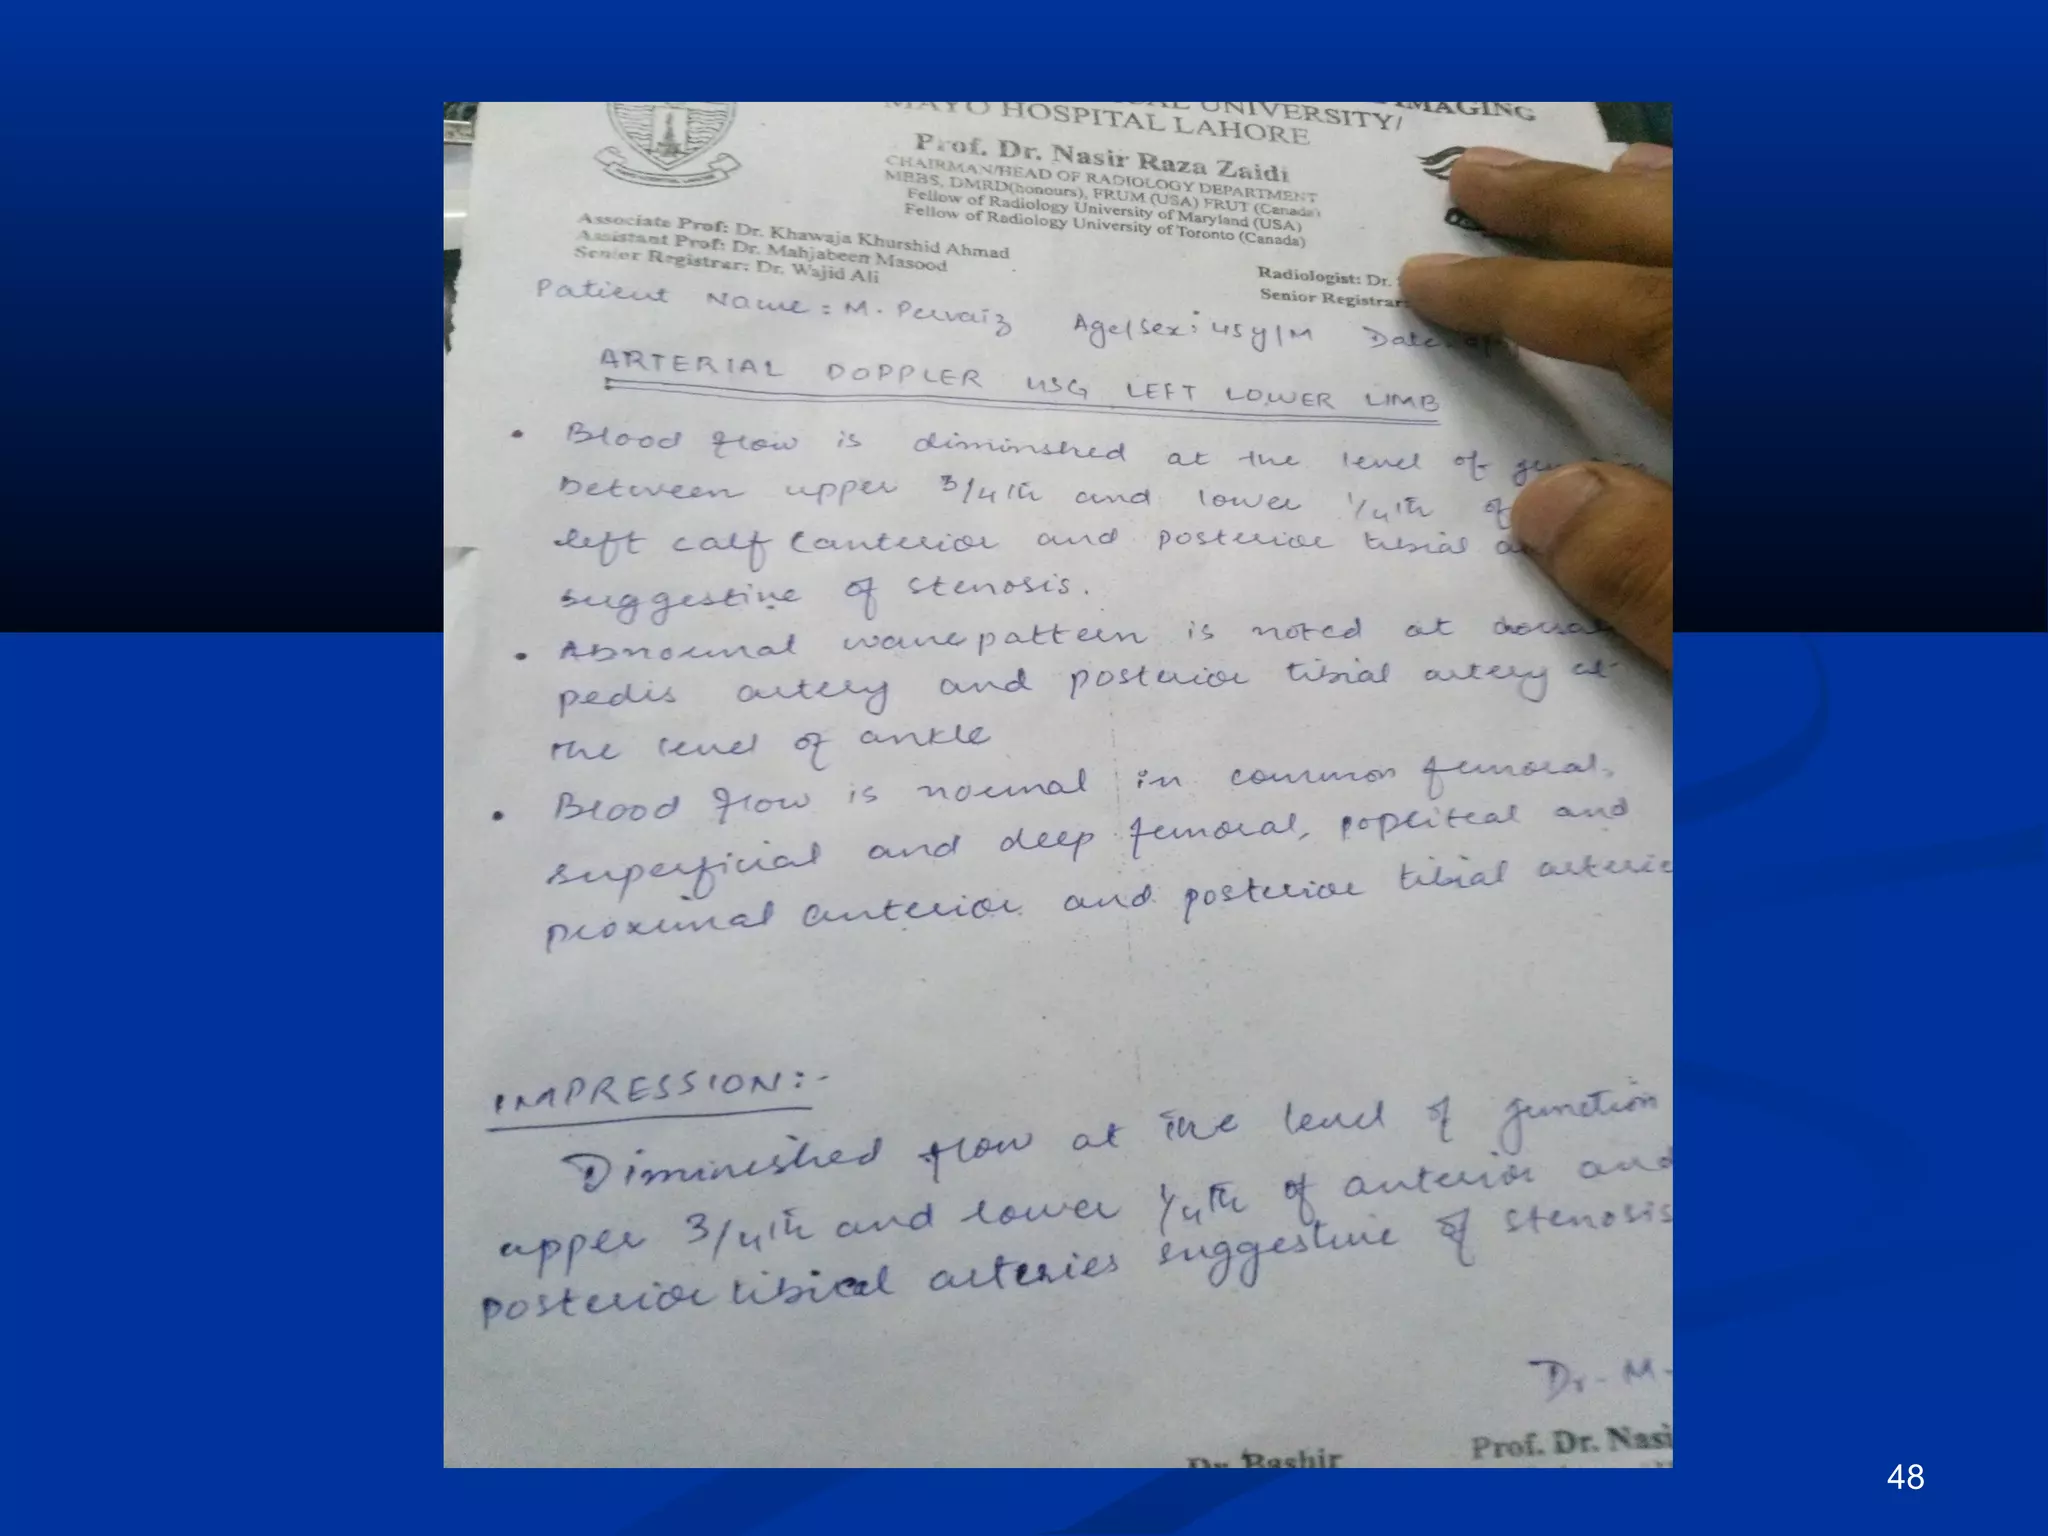 IMAGING
UNIVERSITY/
MAYO HOSPITAL LAHORE
Prof. Dr. Nasir Raza Zaidi
CHAIRMAN/HEAD OF RADIOLOGY DEPARTMENT
MBBS, DMRD(honours), FRUM (USA) FRUT (Canada)
Fellow of Radiology University of Maryland (USA)
Fellow of Radiology University of Toronto (Canada)
Associate Prof: Dr. Khawaja Khurshid Ahmad
Assistant Prof: Dr. Mahjabeen Masood
Senior Registrar: Dr. Wajid Ali
Radiologist: Dr.
Senior Registrar:
Patient Name: M. Pervaiz Age/Sex: 45y/M Date
ARTERIAL DOPPLER USG LEFT LOWER LIMB
• Blood flow is diminshed at the level of
between upper 3/4th and lower 1/4th of
left calf (anterior and posterior tibial
suggestive of stenosis.
• Abnormal wave pattern is noted at dorsal
pedis artery and posterior tibial artery at
the level of ankle
• Blood flow is normal in common femoral,
superficial and deep femoral, popliteal and
proximal anterior and posterior tibial arterie
IMPRESSION:-
Diminished flow at the level of junction
upper 3/4th and lower 1/4th of anterior and
posterior tibial arteries suggestive of stenosis
Dr. M.
Dr. Bashir
Prof. Dr. Nasi
48